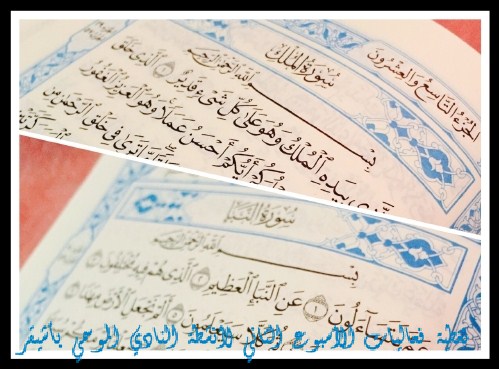 الجُزْءُ التَّاسِعُ وَالعِشْرُونَ
سُورَةُ المُلْكِ
بِسْمِ اللَّهِ الرَّحْمَٰنِ الرَّحِيمِ
بِيَدِهِ ٱلْمُلْكُ وَهُوَ عَلَىٰ كُلِّ شَىْءٍ قَدِيرٌ ١ ٱلَّذِى خَلَقَ
أَيُّكُمْ أَحْسَنُ عَمَلًا وَهُوَ ٱلْعَزِيزُ ٱلْغَفُورُ
تَرَىٰ فِى خَلْقِ ٱلرَّحْمَٰنِ مِن
سُورَةُ النَّبَإِ
بِسْمِ اللَّهِ الرَّحْمَٰنِ الرَّحِيمِ
عَمَّ يَتَسَآءَلُونَ ١ عَنِ ٱلنَّبَإِ ٱلْعَظِيمِ ٢ ٱلَّذِى هُمْ فِيهِ مُخْتَلِفُونَ ٣
سَيَعْلَمُونَ أَلَمْ نَجْعَلِ ٱلْأَرْضَ مِهَٰدًا
تغطية فعاليات الأسبوع الثاني لأنشطة النادي بأشيقر